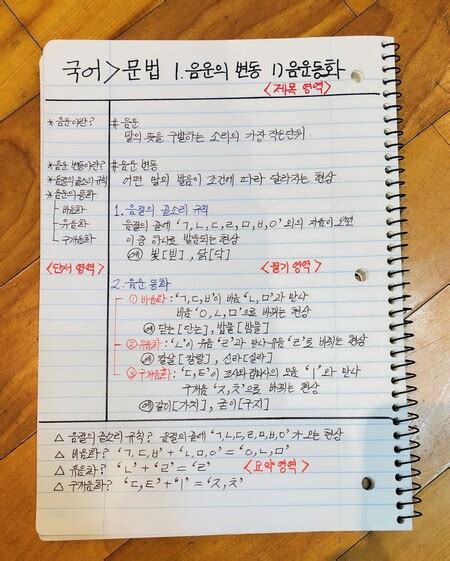 국어 > 문법 1. 음운의 변동 1) 음운동화
<제목 영역>
* 음운이란?
# 음운
말의 뜻을 구별하는 소리의 가장 작은 단위.
* 음운 변동이란?
* 음절의 끝소리 규칙
* 음운의 동화
비음화
유음화
구개음화
<단서 영역>
# 음운 변동
어떤 말의 발음이 조건에 따라 달라지는 현상
1. 음절의 끝소리 규칙
음절의 끝에 'ㄱ, ㄴ, ㄷ, ㄹ, ㅁ, ㅂ, ㅇ' 외의 자음이 오면
이 중 하나로 발음되는 현상
예) 빛[빋], 닭[닥]
<필기 영역>
2. 음운 동화
① 비음화 : 'ㄱ, ㄷ, ㅂ'이 비음 'ㄴ, ㅁ'과 만나
비음 'ㅇ, ㄴ, ㅁ'으로 바뀌는 현상
예) 닫는[단는], 밥물[밤물]
② 유음화 : 'ㄴ'이 유음 'ㄹ'과 만나 유음 'ㄹ'로 바뀌는 현상
예) 칼날[칼랄], 신라[실라]
③ 구개음화 : 'ㄷ, ㅌ'이 조사와 접미사의 모음 'ㅣ'와 만나
구개음 'ㅈ, ㅊ'으로 바뀌는 현상
예) 같이[가치], 굳이[구지]
△ 음절의 끝소리 규칙? 음절의 끝에 'ㄱ, ㄴ, ㄷ, ㄹ, ㅁ, ㅂ, ㅇ'가 오는 현상
△ 비음화? 'ㄱ, ㄷ, ㅂ' + 'ㄴ, ㅁ, ㅇ' = 'ㅇ, ㄴ, ㅁ'
△ 유음화? 'ㄴ' + 'ㄹ' = 'ㄹ'
<요약 영역>
△ 구개음화? 'ㄷ, ㅌ' + 'ㅣ' = 'ㅈ, ㅊ'